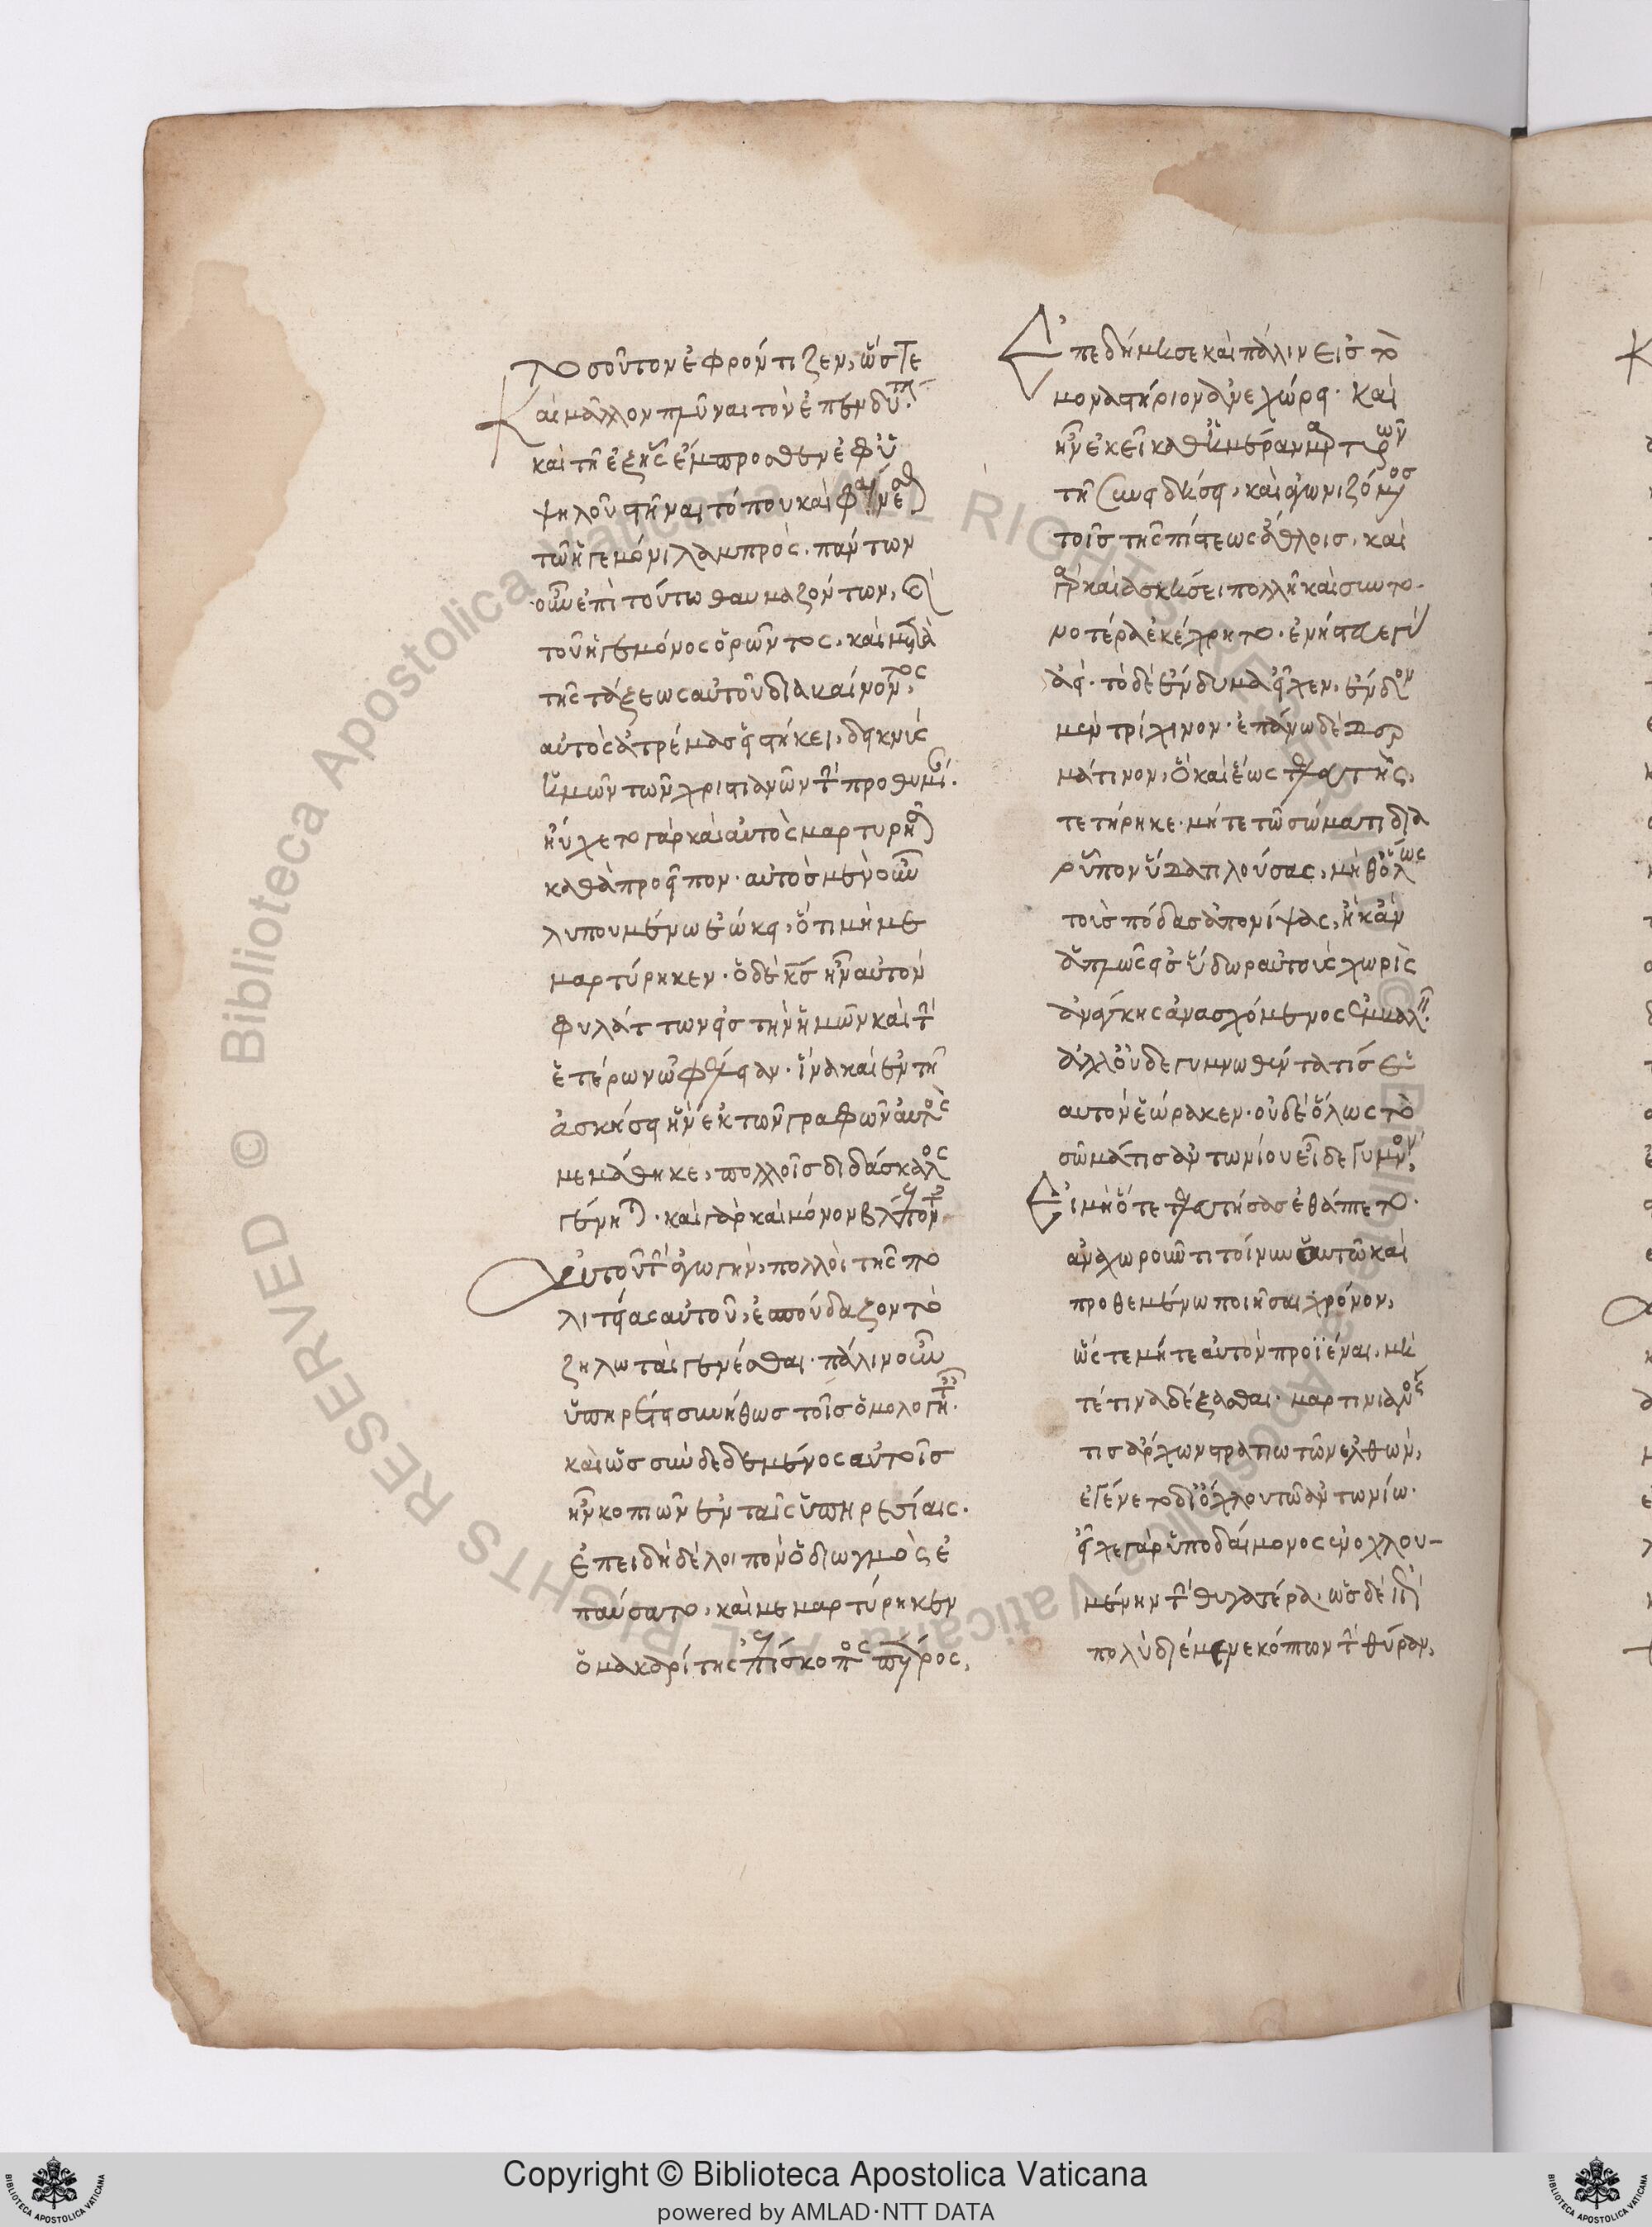 τοσοῦτον ἐφρόντιζεν, ὥστε
Καὶ μᾶλλον πλῦναι τὸν ἐπενδύτην·
καὶ τῇ ἑξῆς ἔμπροσθεν ἐφ' ὑ
ψηλοῦ στῆναι τόπου καὶ φαίνεσθαι
τῷ ἡγεμόνι λαμπρός. πάντων
οὖν ἐπὶ τούτω θαυμαζόντων, καὶ
τοῦ ἡγεμόνος ὁρῶντος, καὶ μετὰ
τῆς τάξεως αὐτοῦ διακαίνοντος,
αὐτὸς ἀτρέμας εἱστήκει, δεικνὺς
ἡμῶν τῶν χριστιανῶν τὴν προθυμίαν.
ηὔχετο γὰρ καὶ αὐτὸς μαρτυρῆσαι
καθὰ προεῖπον. αὐτὸς μὲν οὖν
λυπουμένω ἐώκει, ὅτι μὴ με
μαρτύρηκεν. ὁ δὲ κς ἦν αὐτὸν
φυλάττων εἰς τὴν ἡμῶν καὶ τὴν
ἑτέρων ὠφέλειαν. ἵνα καὶ ἐν τῇ
ἀσκήσει ἣν ἐκ τῶν γραφῶν αὐτὸς
μεμάθηκε, πολλοῖς διδάσκαλος
γένηται. καὶ γὰρ καὶ μόνον βλέποντες
Αὐτοῦ τὴν ἀγωγὴν, πολλοὶ τῆς πο
λιτείας αὐτοῦ, ἐσπούδαζον τὸ
ζηλωταὶ γενέσθαι. πάλιν οὖν
ὑπηρέτει συνήθως τοῖς ὁμολογηταῖς.
καὶ ὡς συνδεδεμένος αὐτοῖς
ἦν κοπιῶν ἐν ταῖς ὑπηρεσίαις.
ἐπειδὴ δὲ λοιπὸν ὁ διωγμὸς ἐ
παύσατο, καὶ μεμαρτύρηκεν
ὁ μακαρίτης ἐπίσκοπος πέτρος,
Ἐπεδήμησε καὶ πάλιν εἰς τὸ
μοναστήριον ἀνεχώρει. καὶ
ἦν ἐκεῖ καθ' ἡμέραν μαρτυρῶν
τῇ συνειδήσει, καὶ ἀγωνιζόμενος
τοῖς τῆς πίστεως ἄθλοις. καὶ
γὰρ καὶ ἀσκήσει πολλῇ καὶ συντο
νοτέρα ἐκέχρητο. ἐνήστευε γὰρ
ἀεί. τὸ δὲ ἔνδυμα εἶχεν, ἔνδον
μὲν τρίχινον. ἐπάνω δὲ δερ
μάτινον, ὃ καὶ ἕως τελευτῆς,
τετήρηκε. μήτε τὸ σῶμα τι διὰ
ῥύπον ὕδατι λούσας, μηθόλως
τοὺς πόδας ἀπονίψας, ἢ κἂν
ἁπλῶς εἰς ὕδωρ αὐτοὺς χωρὶς
ἀνάγκης ἀνασχόμενος ἐμβαλεῖν.
ἀλλ' οὐδὲ γυμνωθέντα τίς ἑ
αυτὸν ἑώρακεν. οὐδὲ ὅλως τὸ
σῶμά τις ἀντωνίου εἶδε γυμνὸν,
Εἰ μὴ ὅτε τελευτήσας ἐθάπτετο.
ἀναχωροῦντι τοίνυν αὐτῷ καὶ
προθεμένω ποιῆσαι χρόνον,
ὥστε μήτε αὐτὸν προϊέναι, μή
τέ τινα δέξασθαι. μαρτινιανός
τις ἄρχων στρατιωτῶν ἐλθὼν,
ἐγένετο δι' ὄχλου τῷ ἀντωνίω.
εἶχε γὰρ ὑπὸ δαίμονος ἐνοχλου-
μένην τὴν θυγατέρα. ὡς δὲ ἐπὶ
πολὺ διέμενε κόπτων τὴν θύραν,